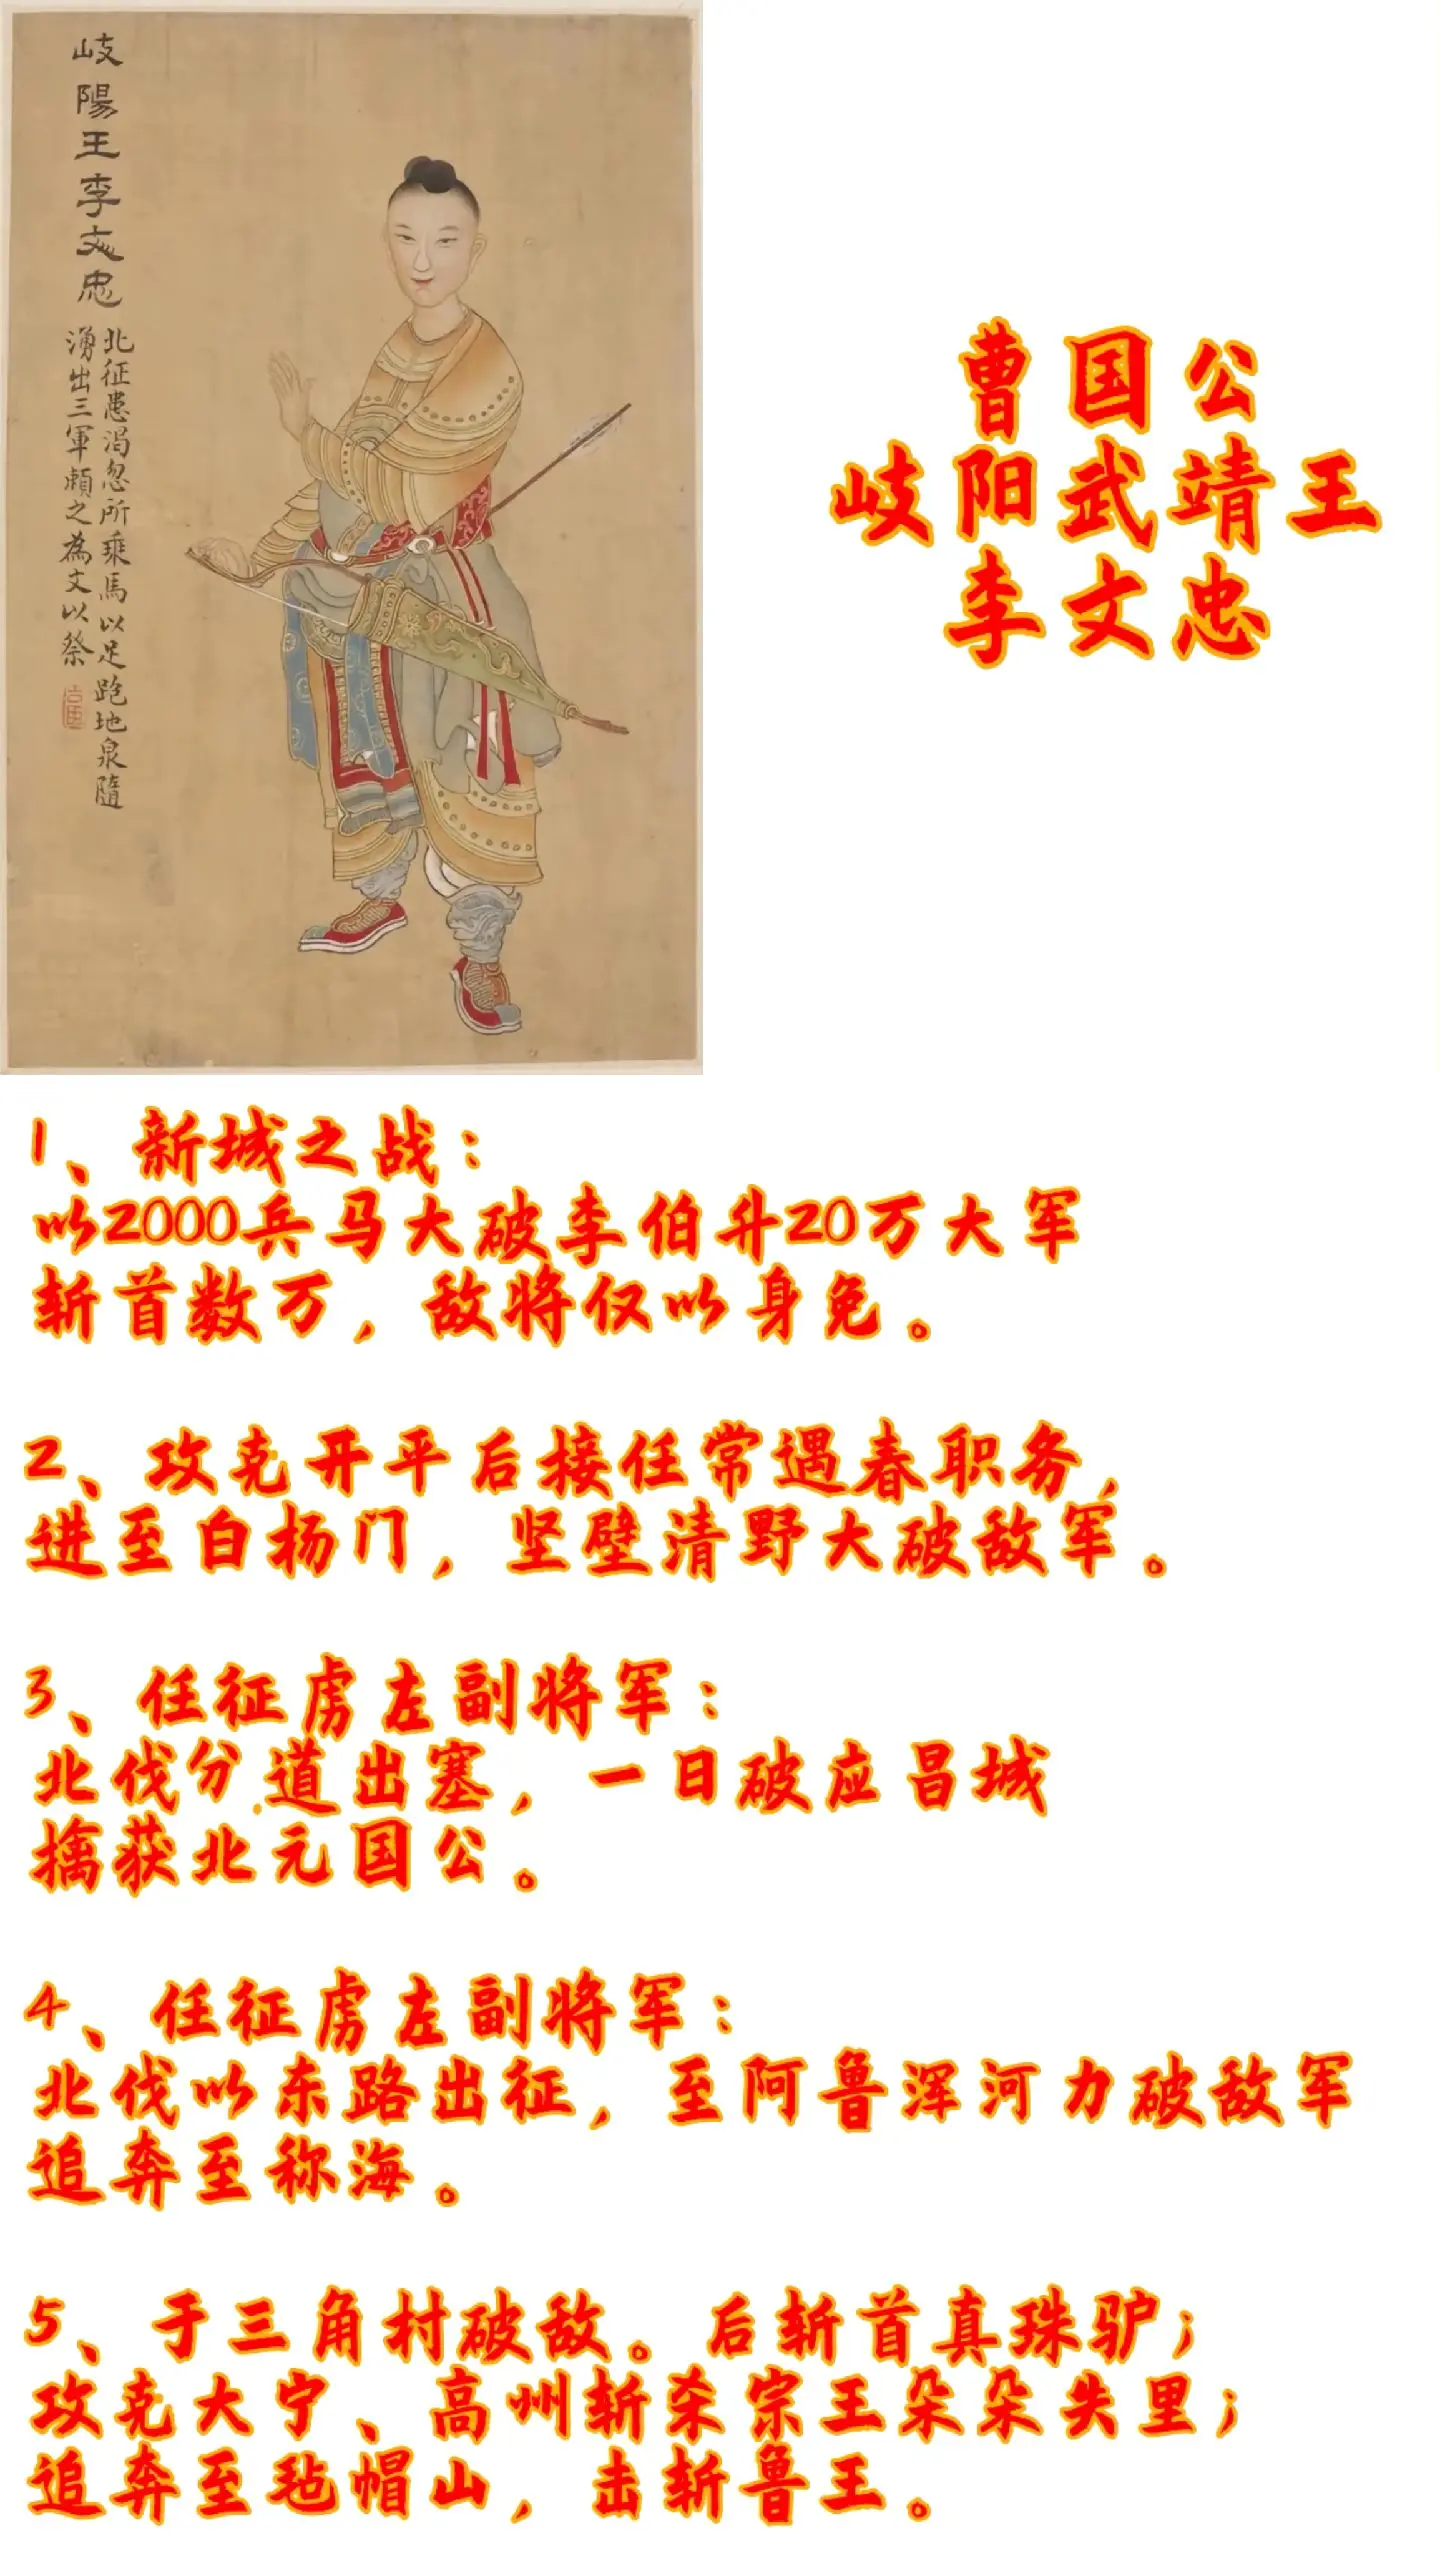 岐陽王李文忠
北征患渴忽所乘馬以足跑地泉隨
湧出三軍頼之為文以祭
曹国公
岐阳武靖王
李文忠
1、新城之战：
以2000兵马大破李伯升20万大军
斩首数万，敌将仅以身免。
2、攻克开平后接任常遇春职务，
进至白杨门，坚壁清野大破敌军。
3、任征虏左副将军：
北伐分道出塞，一日破应昌城
擒获北元国公。
4、任征虏左副将军：
北伐以东路出征，至阿鲁浑河力破敌军
追奔至称海。
5、于三角村破敌。后斩首真珠驴；
攻克大宁、高州斩杀宗王朵朵失里；
追奔至毡帽山，击斩鲁王。